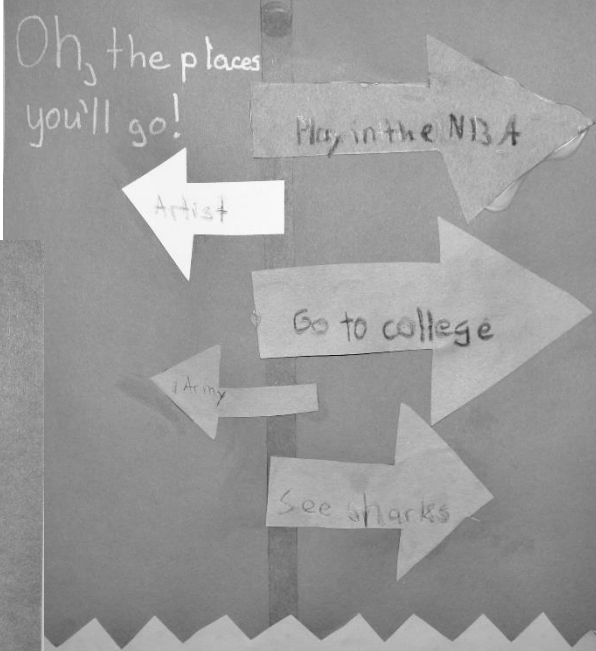 Oh, the places
you'll go!
Play in the NBA
Artist
Go to college
Army
See sharks